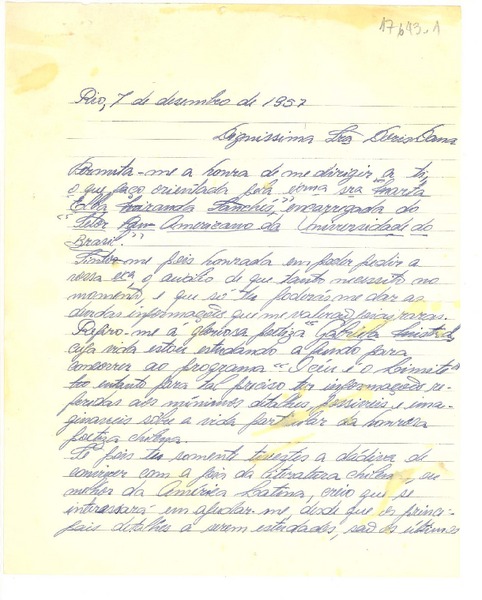 17643-1
Rio, 7 de dezembro de 1957
Digníssima Sra Doris Dana
Permita-me a honra de me dirigir a ti,
o que faço orientada pela exma sra "Marta
Elba Miranda Sanchez", encarregada do
"Setor Pan Americano da Universidade do
Brasil."
Sinto-me pois honrada em poder pedir a
vossa exa o auxílio de que tanto necessito no
momento, e que só tu poderás me dar as
devidas informações que me valerão coisas raras.
Refiro-me à gloriosa poetiza "Gabriela Mistral",
cuja vida estou estudando a fundo para
concorrer ao programa "O céu é o Limite"
No entanto para tal preciso ter informações re-
feridas aos mínimos detalhes possíveis e ima-
gináveis sôbre a vida particular da honrosa
poetiza chilena.
Se pois tu somente tivestes a dádiva de
conviver com a da literatura chilena, ou
melhor da América Latina, creio que se
interessará em ajudar-me, desde que os princi-
pais detalhes a serem estudados, são os últimos